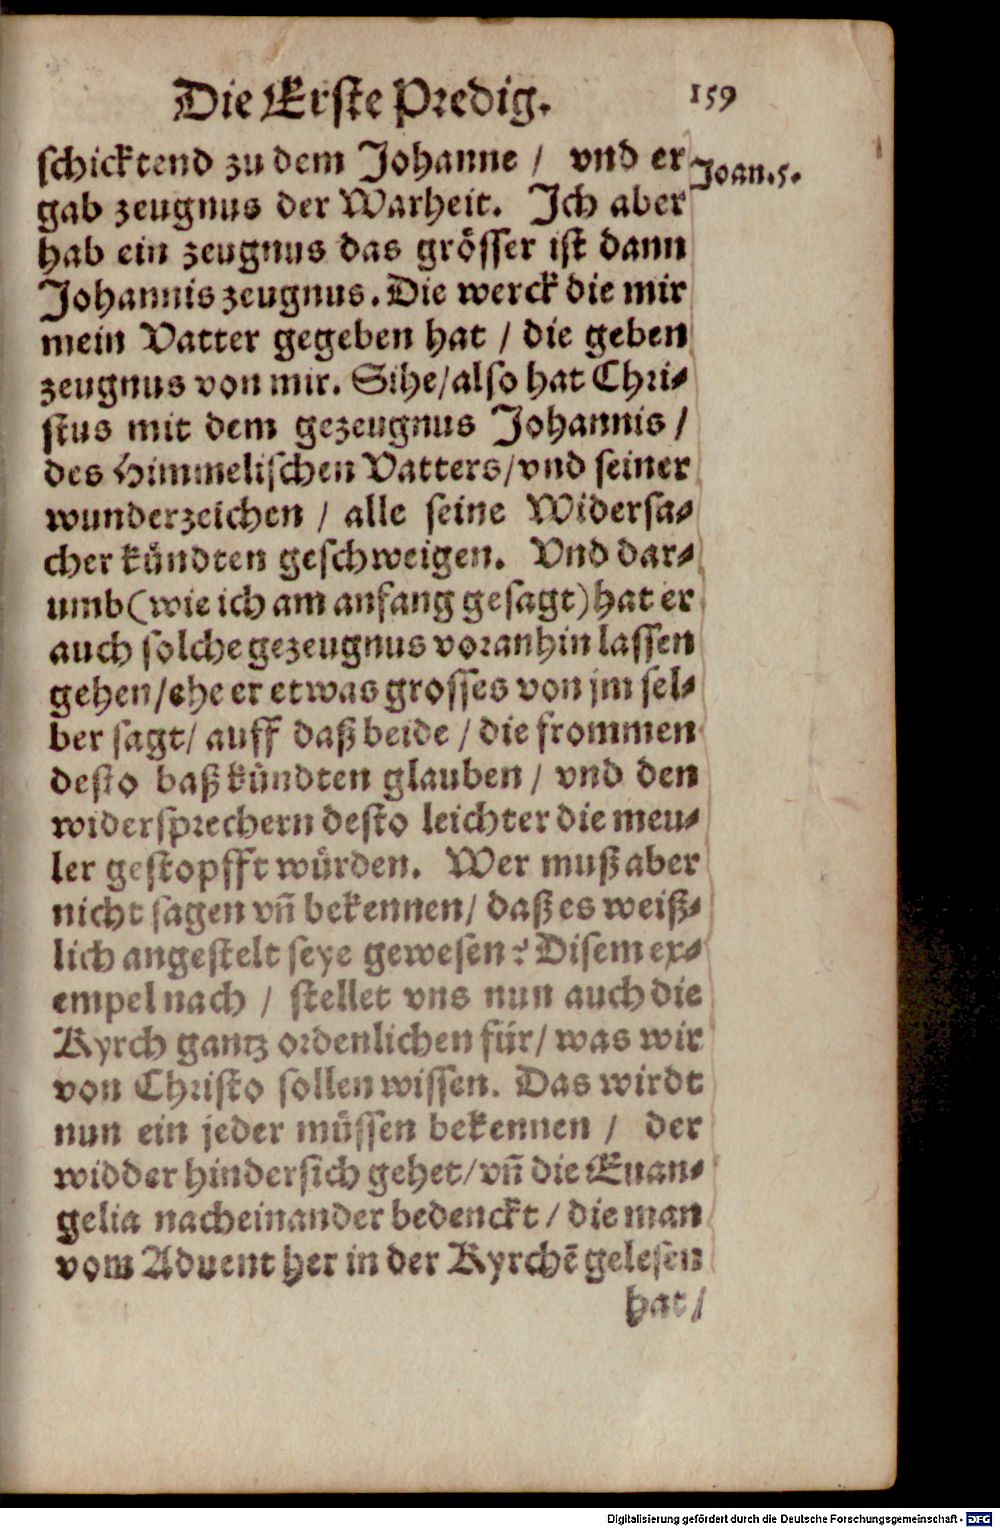 Die Erste Predig. 159
schicktend zu dem Johanne / vnd er Joan.5.
gab zeugnus der Warheit. Ich aber
hab ein zeugnus das grösser ist dann
Johannis zeugnus. Die werck die mir
mein Vatter gegeben hat / die geben
zeugnus von mir. Sihe/also hat Chri-
stus mit dem gezeugnus Johannis /
des Himmelischen Vatters/vnd seiner
wunderzeichen / alle seine Widersa-
cher kündten geschweigen. Vnd dar-
umb(wie ich am anfang gesagt)hat er
auch solche gezeugnus voranhin lassen
gehen/ehe er etwas grosses von jm sel-
ber sagt/ auff daß beide / die frommen
desto baß kündten glauben / vnd den
widersprechern desto leichter die meu-
ler gestopfft würden. Wer muß aber
nicht sagen vñ bekennen/ daß es weiß-
lich angestelt seye gewesen? Disem ex-
empel nach / stellet vns nun auch die
Kyrch gantz ordenlichen für/ was wir
von Christo sollen wissen. Das wirdt
nun ein jeder müssen bekennen / der
widder hindersich gehet/vñ die Euan-
gelia nacheinander bedenckt / die man
vom Aduent her in der Kyrchẽ gelesen
hat /
Digitalisierung gefördert durch die Deutsche Forschungsgemeinschaft - DFG